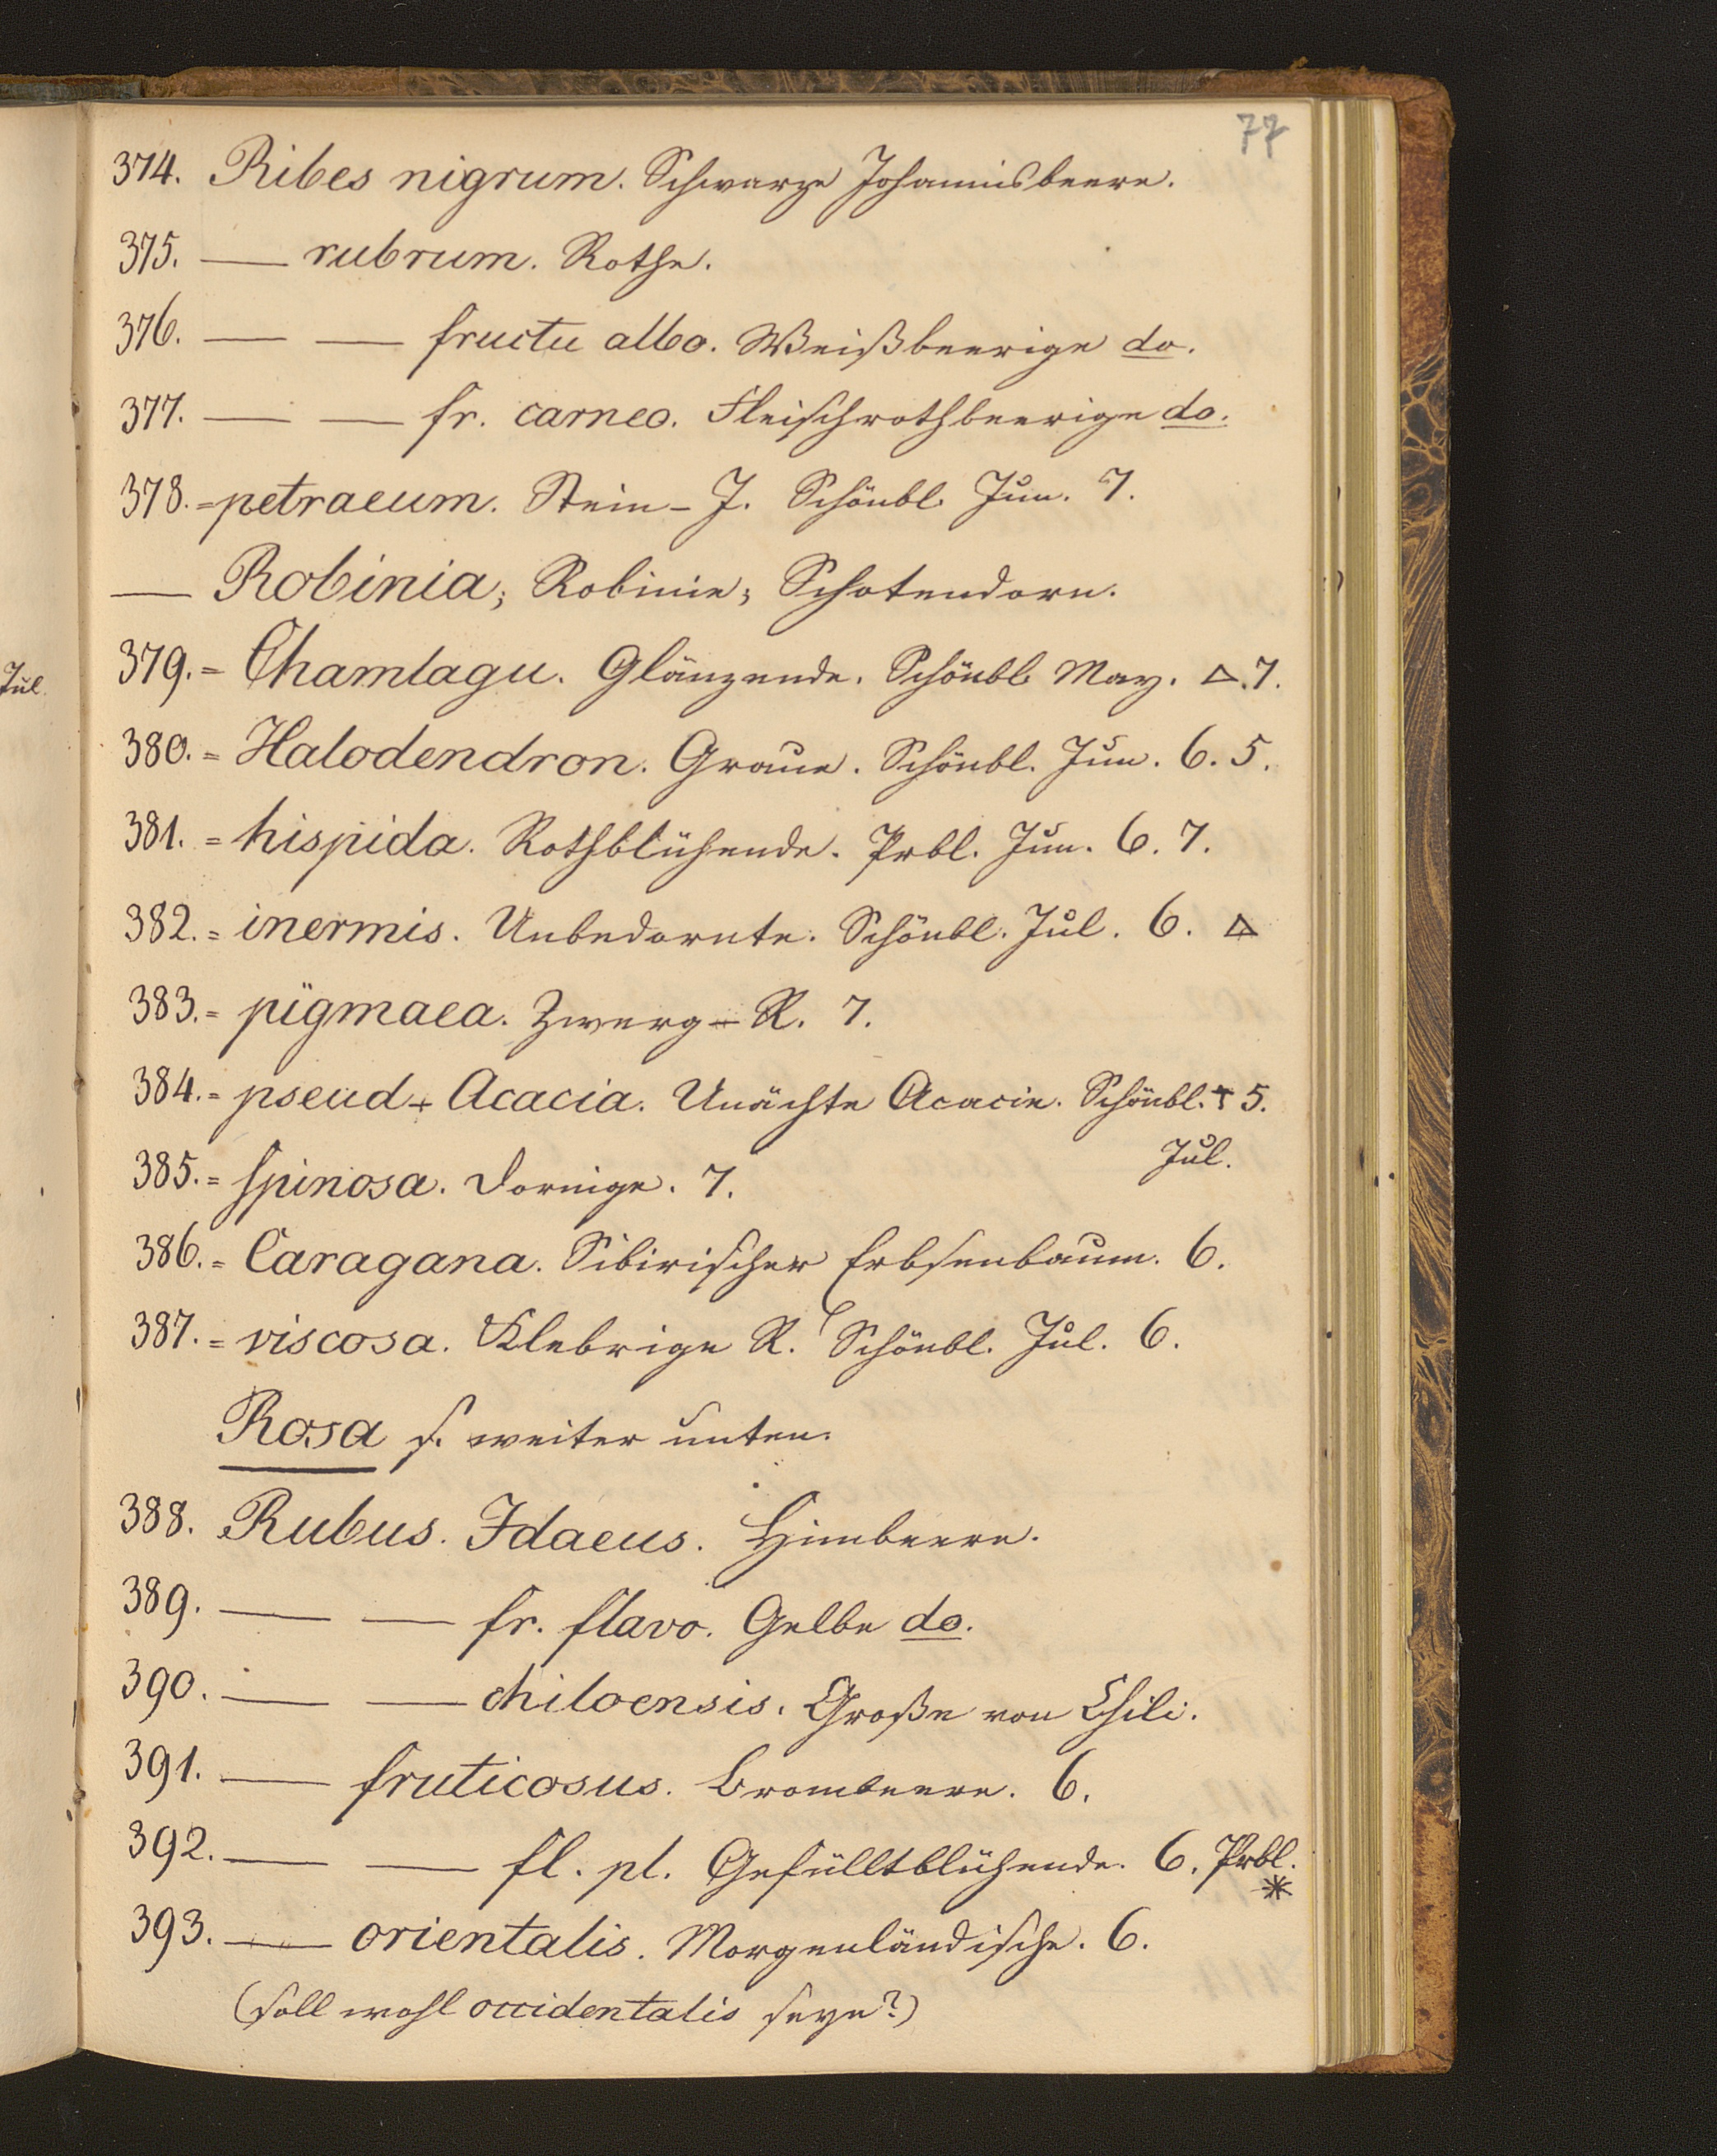 77
374. Ribes nigrum. Schwarze Johannisbeere.
375. — rubrum. Rothe.
376. — — fructu albo. Weißbeerige do.
377. — — fr. carneo. Fleischrothbeerige do.
378. = petraeum. Stein-J. Schönbl. Jun. 7.
— Robinia; Robinie; Schotendorn.
379. = Chamlagu. Glänzende. Schönbl. May. △. 7.
380. = Halodendron. Graue. Schönbl. Jun. 6. 5.
381. = hispida. Rothblühende. Prbl. Jun. 6. 7.
382. = inermis. Unbedornte. Schönbl. Jul. 6. △
383. = pÿgmaea. Zwerg-R. 7.
384. = pseud + Acacia. Unächte Acacie. Schönbl. + 5.
Jul.
385. = spinosa. Dornige. 7.
386. = Caragana. Sibirischer Erbsenbaum. 6.
387. = viscosa. Klebrige R. Schönbl. Jul. 6.
Rosa s. weiter unten.
388. Rubus. Idaeus. Himbeere.
389. — — fr. flavo. Gelbe do.
390. — — chiloensis. Große von Chili.
391. — fruticosus. Brombeere. 6.
392. — — fl. pl. Gefülltblühende. 6. Prbl.
*
393. — orientalis. Morgenländische. 6.
(soll wohl occidentalis seyn?)
Jul.